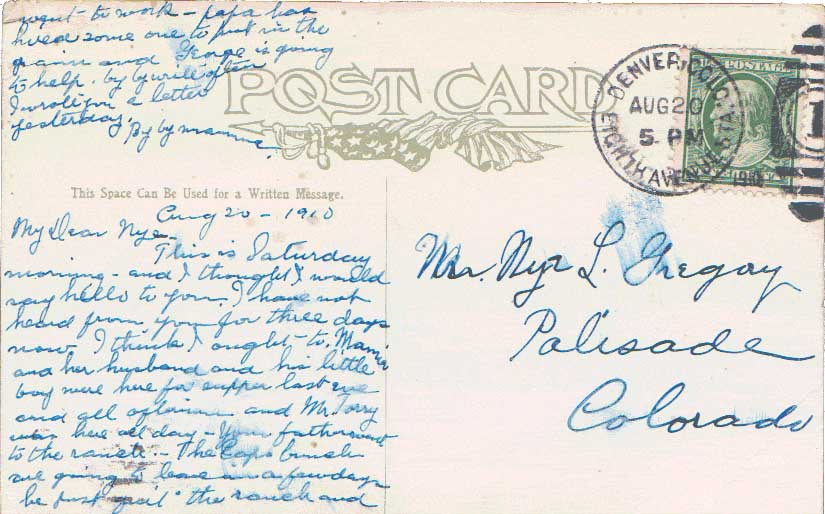 went to work - papa has
hired some one to put in the
grain and George is going
to help. by by write often
I wrote you a letter
yesterday.
By by mamma
POST CARD
U.S. POSTAGE
DENVER, COLO.
AUG 20
5. PM
1910
EIGHTH AVENUE STA.
1
This Space Can Be Used for a Written Message.
Aug 20 - 1910
My Dear Nye -
This is Saturday
morning - and I thought I would
say hello to you. I have not
heard from you for three days
now I think I ought - to. Mamie
and her husband and his little
boy were here for supper last eve
and all afternoon and Mr. Torry
was here all day - Your father went
to the ranch. - The bunch
are going to leave in a few days
he just quit the ranch and
Mr. Nye L. Gregory
Palisade
Colorado